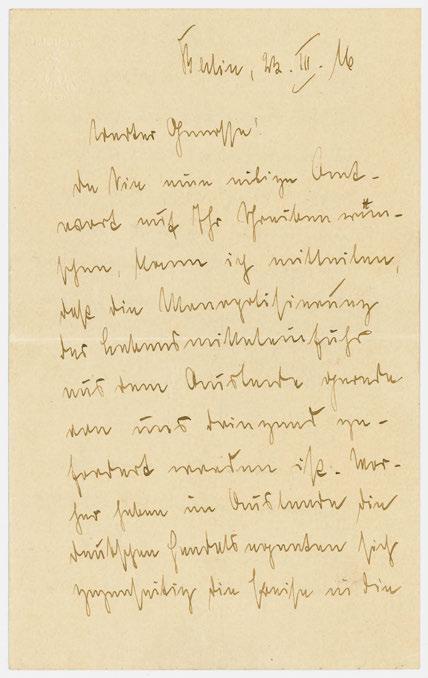 Berlin, 22. III. 16
Werter Genosse!
Da Sie eine eilige Ant-
wort auf Ihr Schreiben wün-
schen, kann ich mitteilen,
daß die Monopolisierung
der Lebensmitteleinfuhr
aus dem Auslande gerade
von uns dringend ge-
fordert worden ist. Vor-
her haben im Auslande die
deutschen Handelsagenten sich
gegenseitig die Preise in die